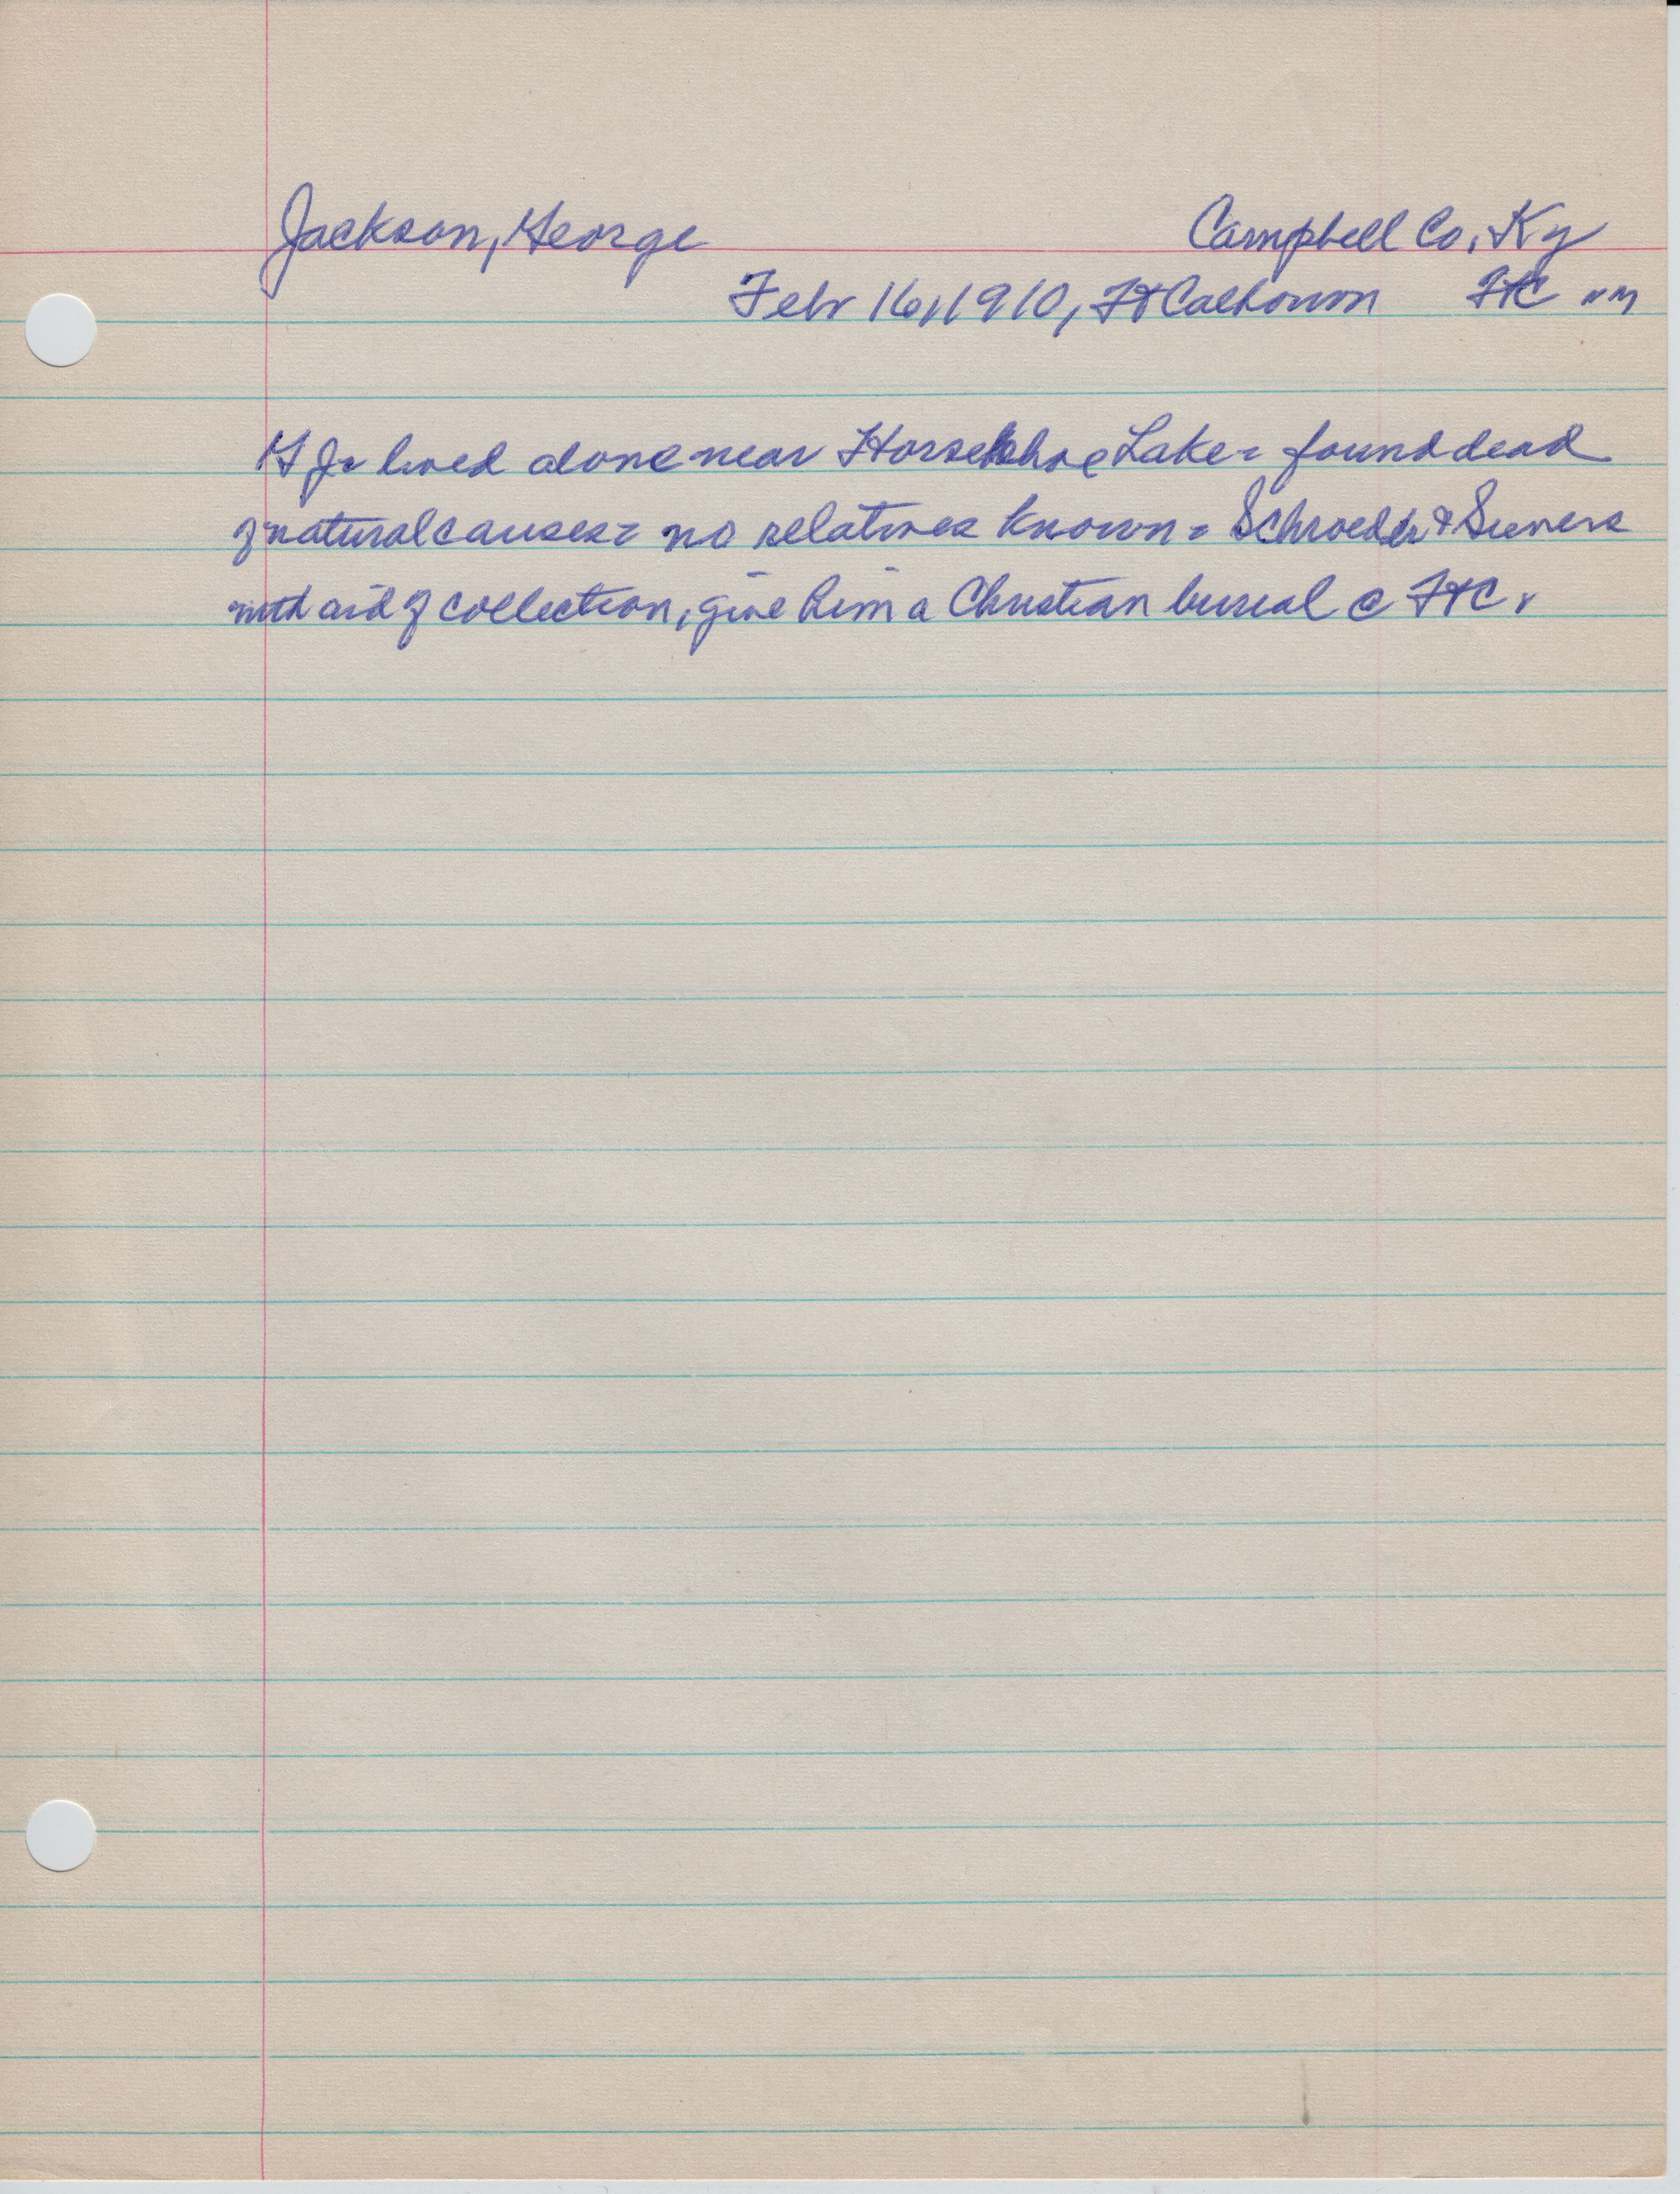 Jackson, George Campbell Co, Ky
Febr 16, 1910, Ft Calhoun FtC
G J = lived alone near Horseshoe Lake = found dead
of natural causes = no relatives known = Schroeder & Sievers
with aid of collection, give him a Christian burial @ FtC.